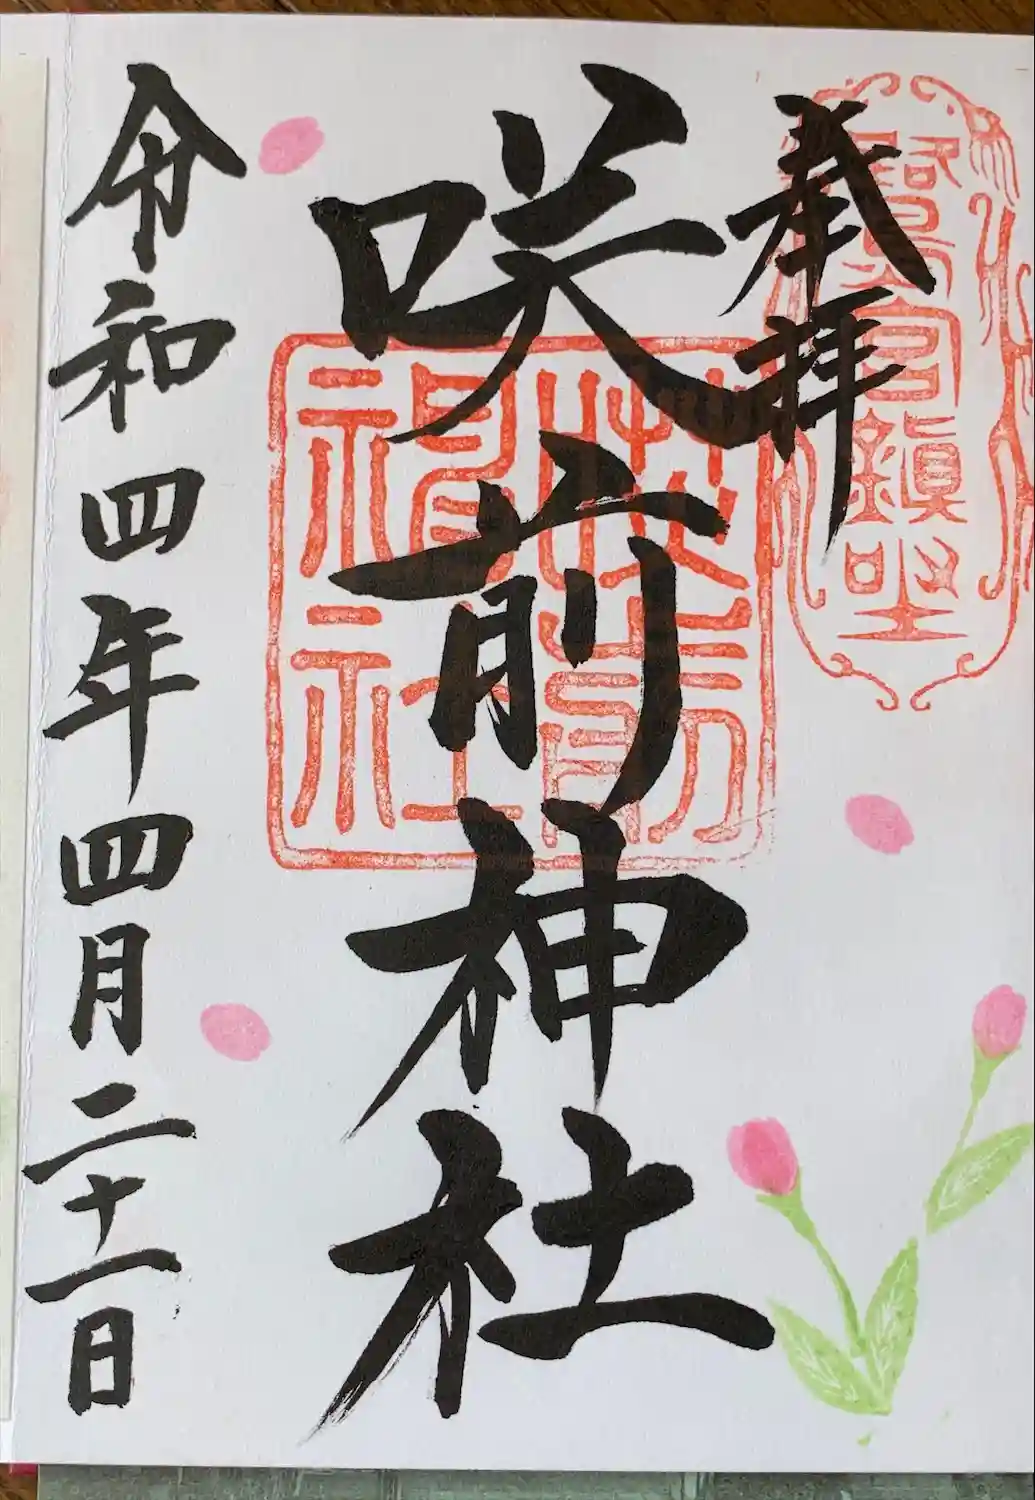 鷺宮鎮坐
奉拝
咲前神社
令和四年四月二十一日